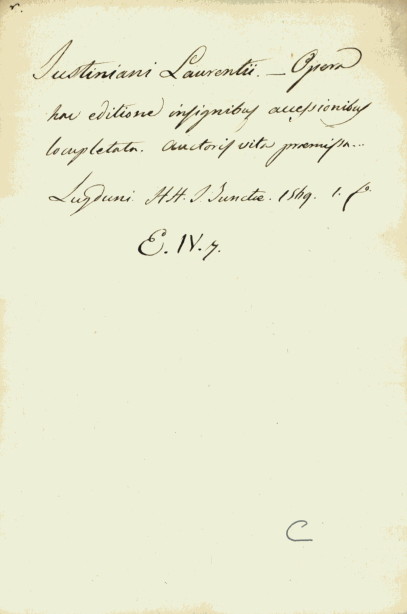 r.
Justiniani Laurentii. — Opera
hac editione insignibus accessionibus
locupletata. auctoris vita præmissa...
Lugduni. HH. J. Junctæ. 1569. 1. f.º
E. IV. 7.
C